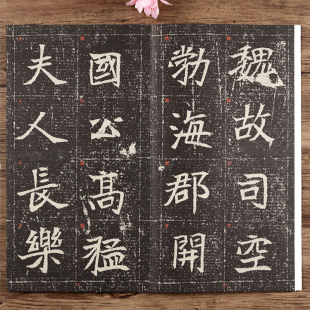 魏故司空
勃海郡開
國公高猛
夫人長樂